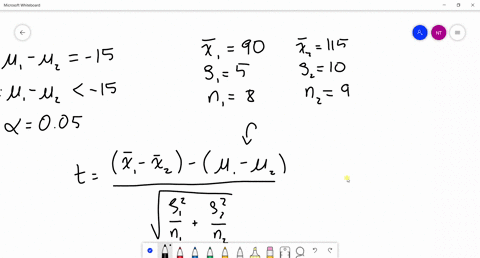 Microsoft Whiteboard
NT
μ₁ - μ₂ = -15
= μ₁ - μ₂ < -15
α = 0.05
x̄₁ = 90
s₁ = 5
n₁ = 8
x̄₂ = 115
s₂ = 10
n₂ = 9
t = (x̄₁ - x̄₂) - (μ₁ - μ₂) / √(s₁²/n₁ + s₂²/n₂)